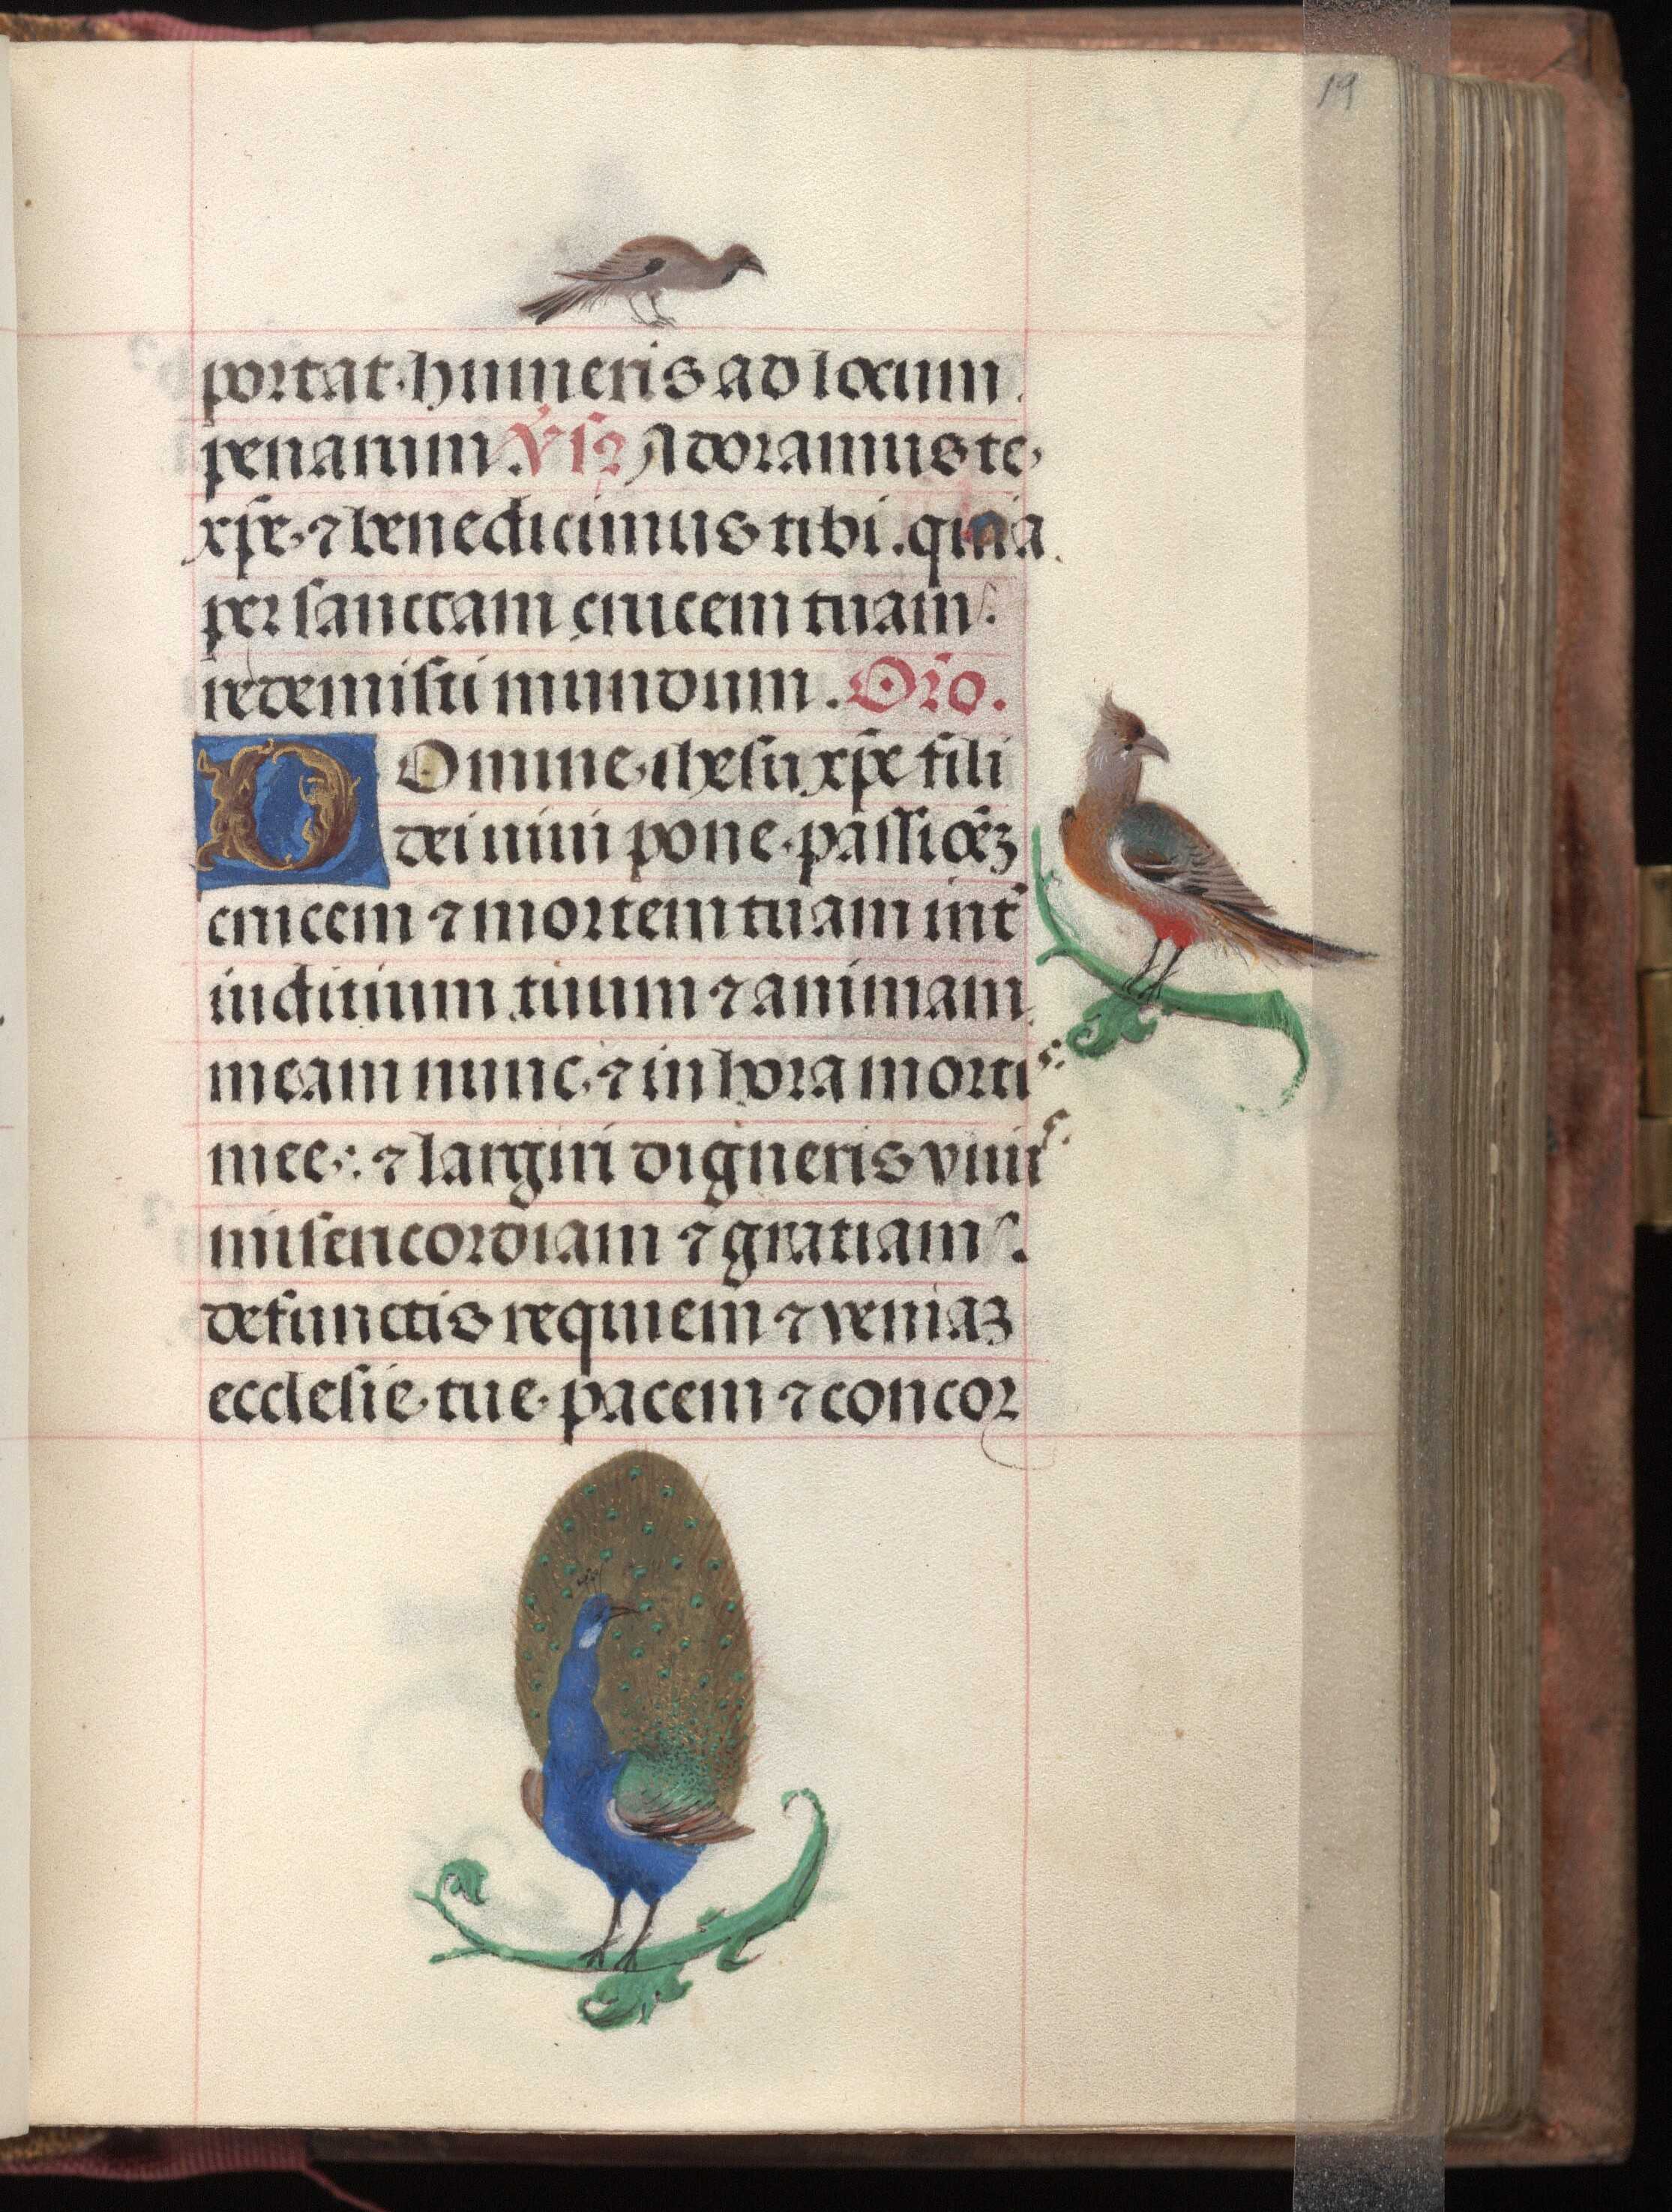 19
portat humeris ad locum
penarum. Vers Adoramus te
xp̄e ⁊ benedicimus tibi. quia
per sanctam crucem tuam.
redemisti mundum. Oro.
Domine ihesu xp̄e fili
dei uiui pone passioēz
crucem ⁊ mortem tuam int̄
iuditium tuum ⁊ animam
meam nunc ⁊ in hora mortis
mee: ⁊ largiri digneris viuis
misericordiam ⁊ gratiam.
defunctis requiem ⁊ veniaz
ecclesie tue pacem ⁊ concor